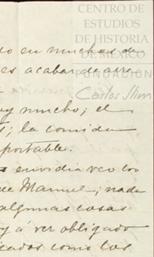 CENTRO DE
ESTUDIOS
DE HISTORIA
DE MÉXICO
FUNDACIÓN
Carlos Slim
do en muchas de
es acabar de
uy mucho; el
; la comida
portable.
envidia veo los
de Manuel; nada
algunas cosas
y á ver obligado
cados como los